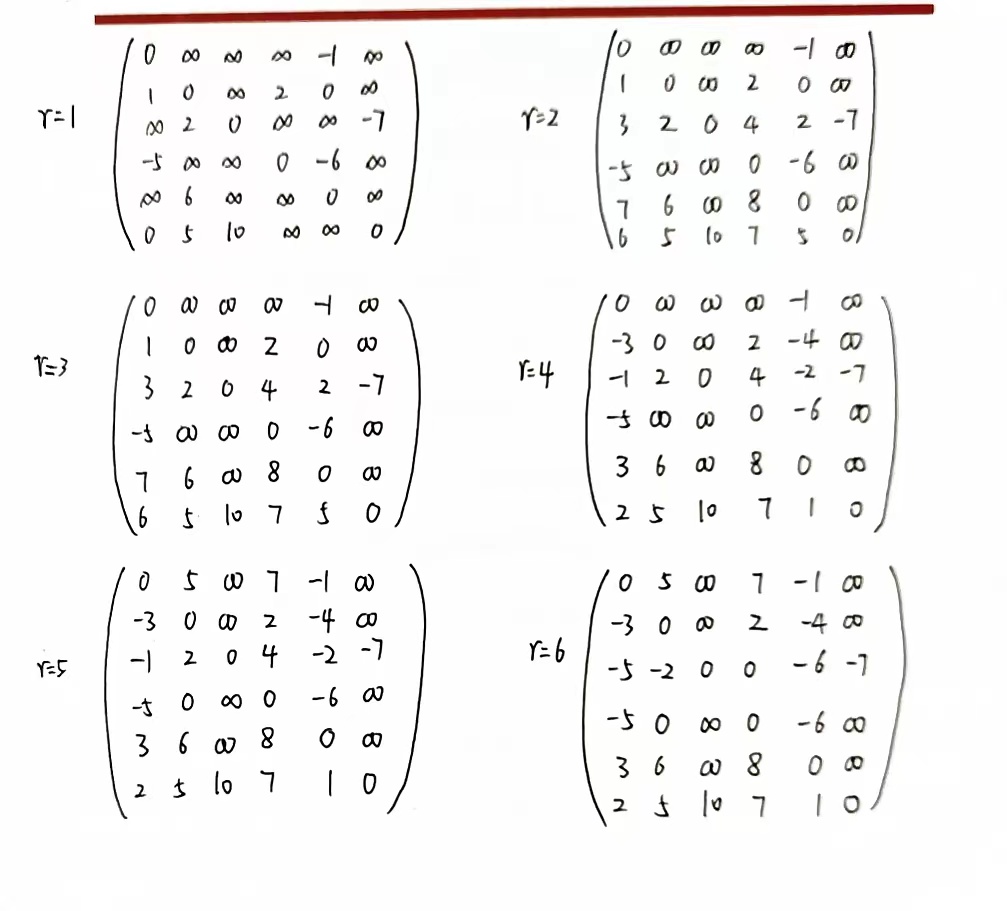 r=1
0 ∞ ∞ ∞ -1 ∞
1 0 ∞ 2 0 ∞
∞ 2 0 ∞ ∞ -7
-5 ∞ ∞ 0 -6 ∞
∞ 6 ∞ ∞ 0 ∞
0 5 10 ∞ ∞ 0
r=2
0 ∞ ∞ ∞ -1 ∞
1 0 ∞ 2 0 ∞
3 2 0 4 2 -7
-5 ∞ ∞ 0 -6 ∞
7 6 ∞ 8 0 ∞
6 5 10 7 5 0
r=3
0 ∞ ∞ ∞ -1 ∞
1 0 ∞ 2 0 ∞
3 2 0 4 2 -7
-5 ∞ ∞ 0 -6 ∞
7 6 ∞ 8 0 ∞
6 5 10 7 5 0
r=4
0 ∞ ∞ ∞ -1 ∞
-3 0 ∞ 2 -4 ∞
-1 2 0 4 -2 -7
-5 ∞ ∞ 0 -6 ∞
3 6 ∞ 8 0 ∞
2 5 10 7 1 0
r=5
0 5 ∞ 7 -1 ∞
-3 0 ∞ 2 -4 ∞
-1 2 0 4 -2 -7
-5 0 ∞ 0 -6 ∞
3 6 ∞ 8 0 ∞
2 5 10 7 1 0
r=6
0 5 ∞ 7 -1 ∞
-3 0 ∞ 2 -4 ∞
-5 -2 0 0 -6 -7
-5 0 ∞ 0 -6 ∞
3 6 ∞ 8 0 ∞
2 5 10 7 1 0